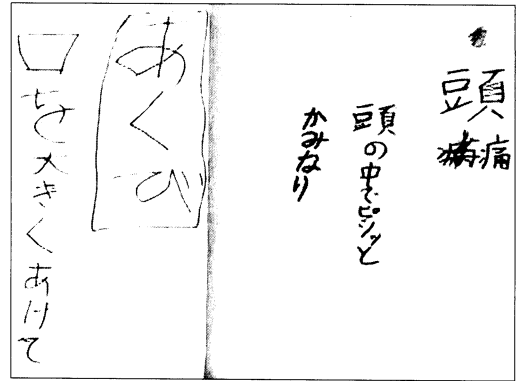 頭痛
頭の中でピシッと
かみなり
あくび
口を大きくあけて